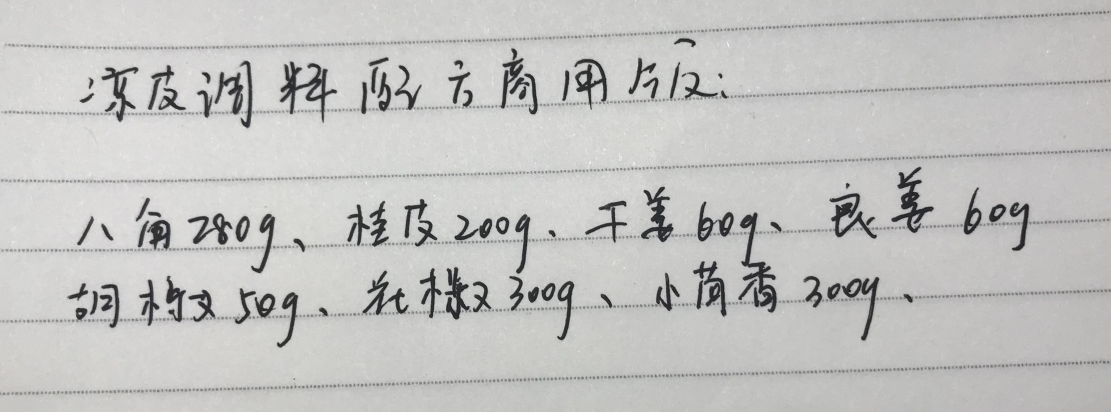 凉皮调料配方商用版:
八角280g、桂皮200g、干姜60g、良姜60g
胡椒50g、花椒300g、小茴香300g、